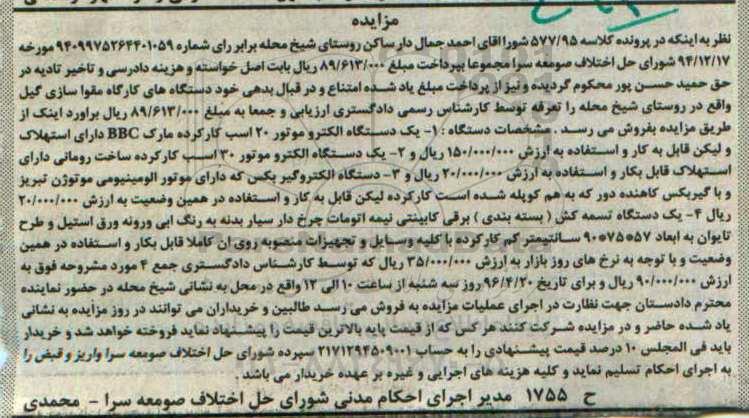 مزایده
نظر به اینکه در پرونده کلاسه ۵۷۷/۹۵ شورا اقای احمد جمال دار ساکن روستای شیخ محله برابر رای شماره ۹۴۰۹۹۷۵۲۶۴۴۰۱۰۵۹ مورخه
۹۴/۱۲/۱۷ شورای حل اختلاف صومعه سرا مجموعا بپرداخت مبلغ ۸۹/۶۱۳/۰۰۰ ریال بابت اصل خواسته و هزینه دادرسی و تاخیر تادیه در
حق حمید حسن پور محکوم گردیده و نیز از پرداخت مبلغ یاد شده امتناع و در قبال بدهی خود دستگاه های کارگاه مقوا سازی گیل
واقع در روستای شیخ محله را تعرفه توسط کارشناس رسمی دادگستری ارزیابی و جمعا به مبلغ ۸۹/۶۱۳/۰۰۰ ریال براورد اینک از
طریق مزایده بفروش می رسد . مشخصات دستگاه : ۱- یک دستگاه الکترو موتور ۲۰ اسب کارکرده مارک BBC دارای استهلاک
و لیکن قابل به کار و استفاده به ارزش ۱۵۰/۰۰۰/۰۰۰ ریال و ۲- یک دستگاه الکترو موتور ۳۰ اسب کارکرده ساخت رومانی دارای
استهلاک قابل بکار و استفاده به ارزش ۲۰/۰۰۰/۰۰۰ ریال و ۳- دستگاه الکتروگیر بکس که دارای موتور الومینیومی موتوژن تبریز
و با گیربکس کاهنده دور که به هم کوپله شده است کارکرده لیکن قابل به کار و استفاده در همین وضعیت به ارزش ۲۰/۰۰۰/۰۰۰
ریال ۴- یک دستگاه تسمه کش ( بسته بندی ) برقی کابینتی نیمه اتومات چرخ دار سیار بدنه به رنگ ابی ورونه ورق استیل و طرح
تایوان به ابعاد ۵۷*۷۵*۹۰ سانتیمتر کم کارکرده با کلیه وسایل و تجهیزات منصوبه روی ان کاملا قابل بکار و استفاده در همین
وضعیت و با توجه به نرخ های روز بازار به ارزش ۳۵/۰۰۰/۰۰۰ ریال که توسط کارشناس دادگستری جمع ۴ مورد مشروحه فوق به
ارزش ۹۰/۰۰۰/۰۰۰ ریال و برای تاریخ ۹۶/۴/۲۰ روز سه شنبه از ساعت ۱۰ الی ۱۲ واقع در محل به نشانی شیخ محله در حضور نماینده
محترم دادستان جهت نظارت در اجرای عملیات مزایده به فروش می رسد طالبین و خریداران می توانند در روز مزایده به نشانی
یاد شده حاضر و در مزایده شرکت کنند هر کس که از قیمت پایه بالاترین قیمت را پیشنهاد نماید فروخته خواهد شد و خریدار
باید فی المجلس ۱۰ درصد قیمت پیشنهادی را به حساب ۲۱۷۱۲۹۴۵۰۹۰۰۱ سپرده شورای حل اختلاف صومعه سرا واریز و قبض را
به اجرای احکام تسلیم نماید و کلیه هزینه های اجرایی و غیره بر عهده خریدار می باشد .
ح ۱۷۵۵ مدیر اجرای احکام مدنی شورای حل اختلاف صومعه سرا - محمدی